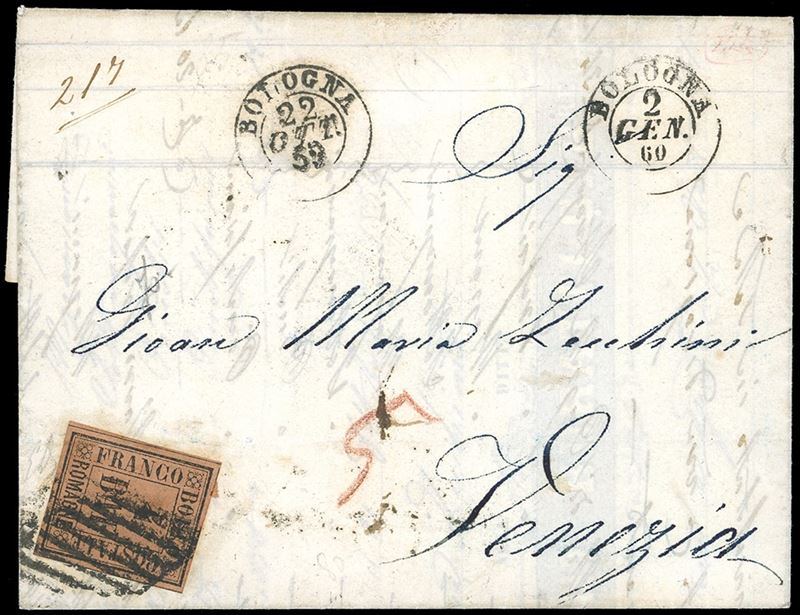 217
BOLOGNA
22
OTT.
59
BOLOGNA
2
GEN.
60
Sig
Gioan Maria Zecchini
5
Venezia
FRANCO
BOLLO
POSTALE
ROMAGNE